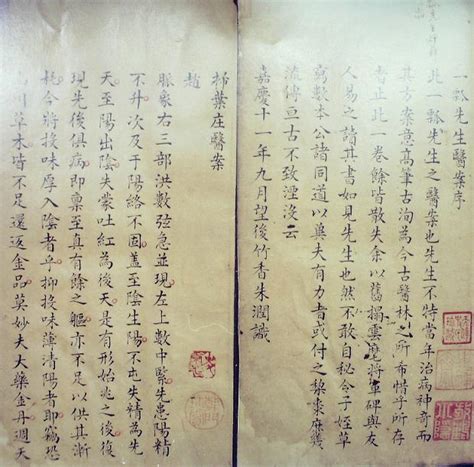 一瓢先生醫案序
此一瓢先生之醫案也先生不特當年治病神奇而
其方案意高筆古洵為今古醫林之所布惜乎所存
者止此一卷餘皆散失余以舊搨雲麾將軍碑與友
人易之諸其書如見先生也然不敢自秘令子姪草
窮數本公諸同道以冀夫有力書或付之棃棗庶幾
流傳亘古不致湮沒云
嘉慶十一年九月望後竹香朱潤識
掃葉庄醫案
趙
脈象右三部洪數弦急並現左上數中緊先患陽精
不升次及于陽絡不固蓋至陰生陽不屯失精為先
天至陽出陰夫蒙吐紅為後天是有形始兆之後復
現先後俱病即稟至真有餘之軀亦不足以供其漸
耗今將投味厚入陰者乎抑投味薄清陽者耶竊恐
草木皆不足還返金品莫妙夫大藥金丹週天